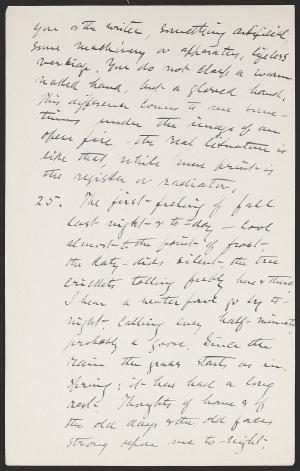 you & the writer, something artificial,
some machinery or apparatus, lifeless
verbiage. You do not clasp a warm
naked hand, but a gloved hand.
This difference comes to me some-
times under the image of an
open fire - the real literature is
like that, while mere print is
the register or radiator.
25. The first feeling of fall
last night & to-day - cool
almost to the point of frost,
the katy-dids silent, the tree
crickets tolling feebly here & there
I hear a water fowl go by to-
night, calling every half-minute,
probably a goose. Since the
rain the grass starts as in
spring; it has had a long
rest. Thoughts of home & of
the old days & the old faces
strong upon me to-night.